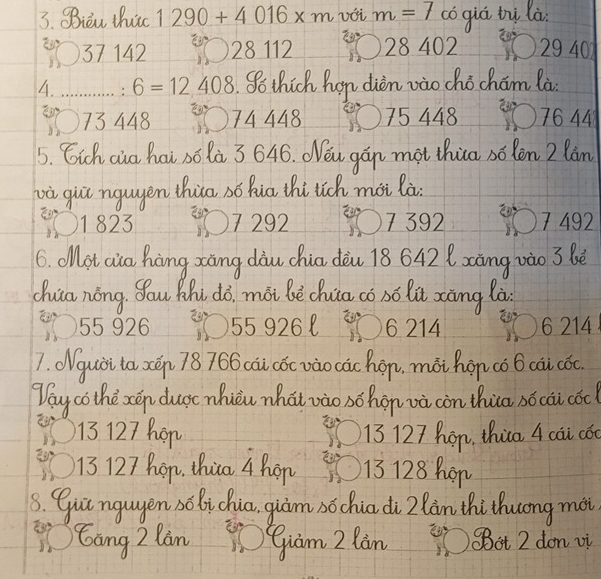 3. Biểu thức 1 290 + 4 016 x m với m = 7 có giá trị là:
37 142 28 112 28 402 29 402
4. ............ : 6 = 12 408. Số thích hợp điền vào chỗ chấm là:
73 448 74 448 75 448 76 44
5. Tích của hai số là 3 646. Nếu gấp một thừa số lên 2 lần
và giữ nguyên thừa số kia thì tích mới là:
1 823 7 292 7 392 7 492
6. Một cửa hàng xăng dầu chia đều 18 642 l xăng vào 3 bể
chứa rỗng. Sau khi đổ, mỗi bể chứa có số lít xăng là:
55 926 55 926 l 6 214 6 214 l
7. Người ta xếp 78 766 cái cốc vào các hộp, mỗi hộp có 6 cái cốc.
Vậy có thể xếp được nhiều nhất vào số hộp và còn thừa số cái cốc l
13 127 hộp 13 127 hộp, thừa 4 cái cốc
13 127 hộp, thừa 4 hộp 13 128 hộp
8. Giữ nguyên số bị chia, giảm số chia đi 2 lần thì thương mới
Tăng 2 lần Giảm 2 lần Bớt 2 đơn vị